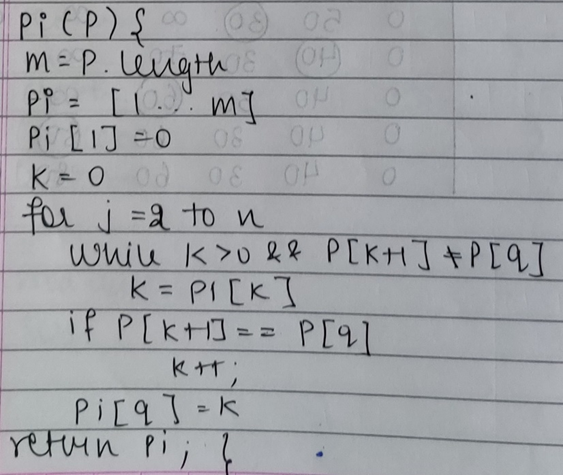 Pi(P){
m = P. length
Pi = [1... m]
Pi[1] = 0
K = 0
for j = 2 to n
while K>0 && P[K+1] ≠ P[q]
K = PI[K]
if P[K+1] == P[q]
K++;
Pi[q] = K
return Pi; {